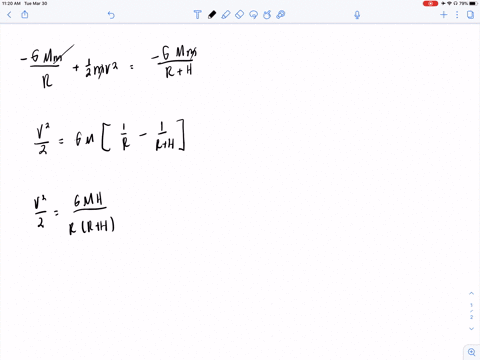 11:20 AM Tue Mar 30
79%
-GMm/R + 1/2 mv² = -GMm/R+H
v²/2 = GM [ 1/R - 1/R+H ]
v²/2 = GMH/R(R+H)
1
2